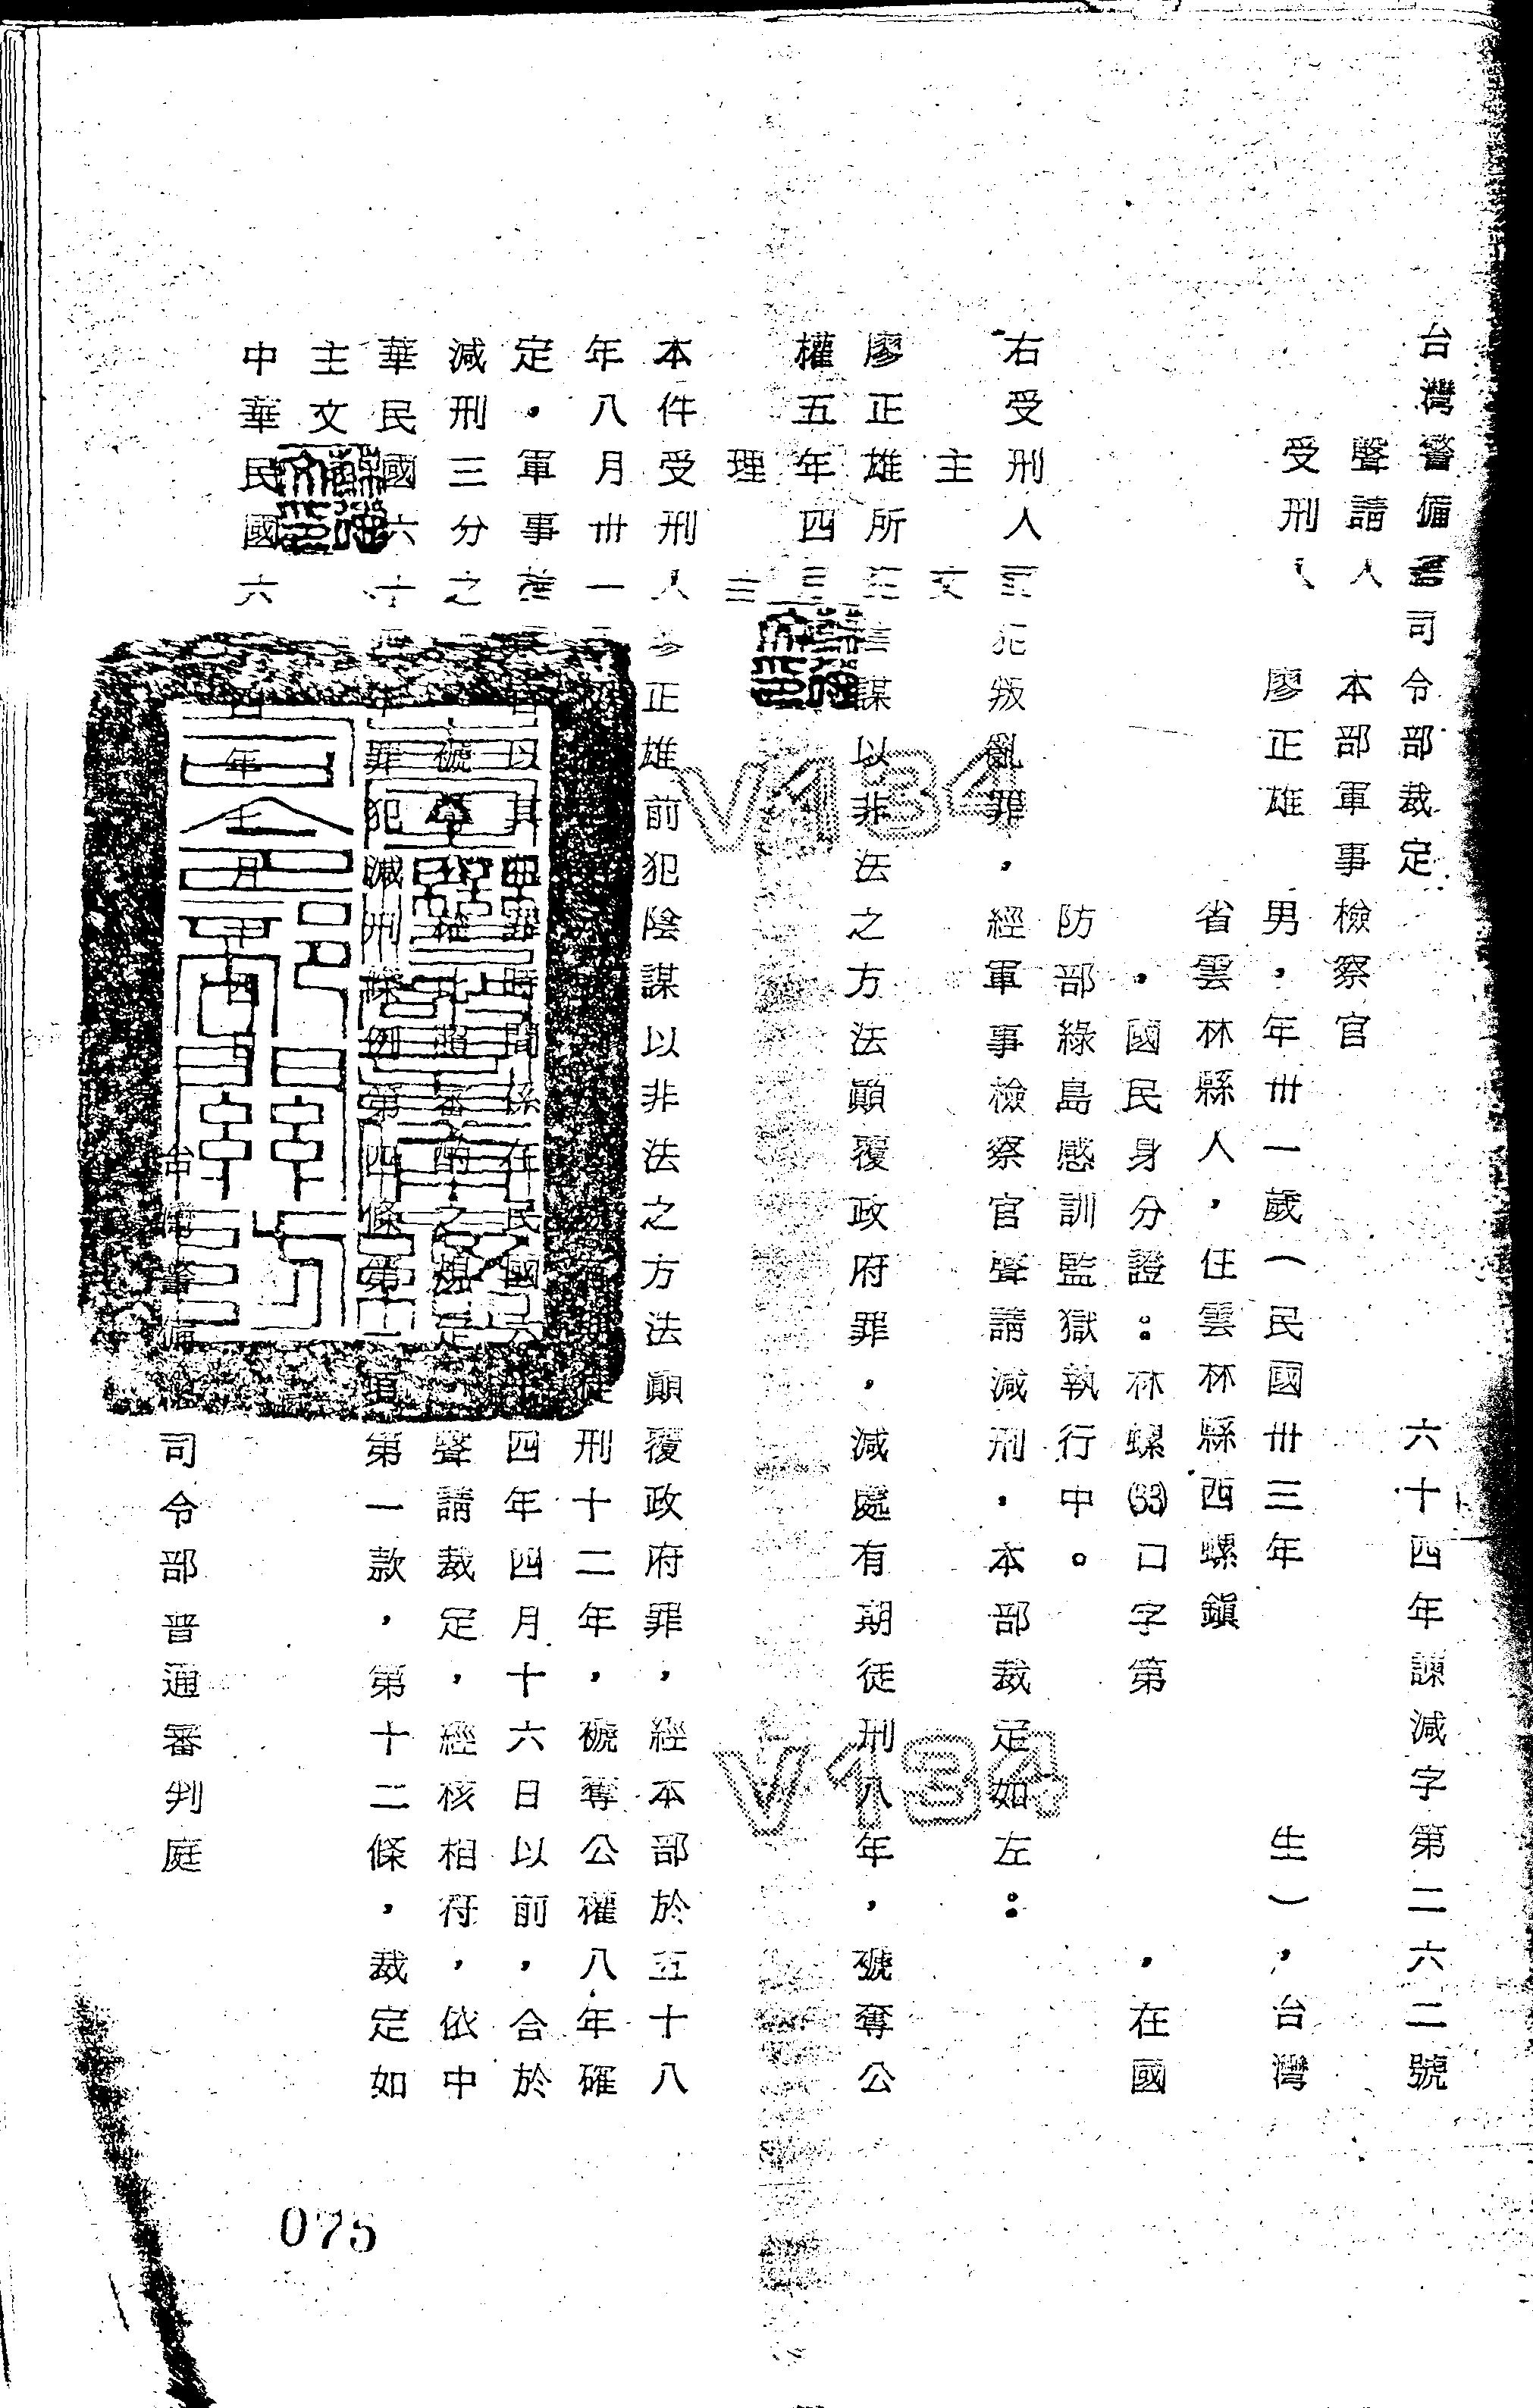 台灣警備總司令部裁定 六十四年諫減字第二六二號
聲請人 本部軍事檢察官
受刑人 廖正雄 男，年卅一歲（民國卅三年 生），台灣
省雲林縣人，住雲林縣西螺鎮
。國民身分證：林螺(53)口字第 ，在國
防部綠島感訓監獄執行中。
右受刑人因犯叛亂罪，經軍事檢察官聲請減刑。本部裁定如左：
主文
廖正雄所犯陰謀以非法之方法顛覆政府罪，減處有期徒刑八年，褫奪公
權五年四月
理由
本件受刑人廖正雄前犯陰謀以非法之方法顛覆政府罪，經本部於五十八
年八月卅一日 徒刑十二年，褫奪公權八年確
定。軍事檢 官以其犯罪時間係在民國六十四年四月十六日以前，合於
減刑三分之 褫奪公權比照審酌之規定，聲請裁定，經核相符，依中
華民國六十四年罪犯減刑條例第四條第一項第一款，第十二條，裁定如
主文
中華民國六十四年七月十四日
台灣警備總司令部普通審判庭
V134
V134
075